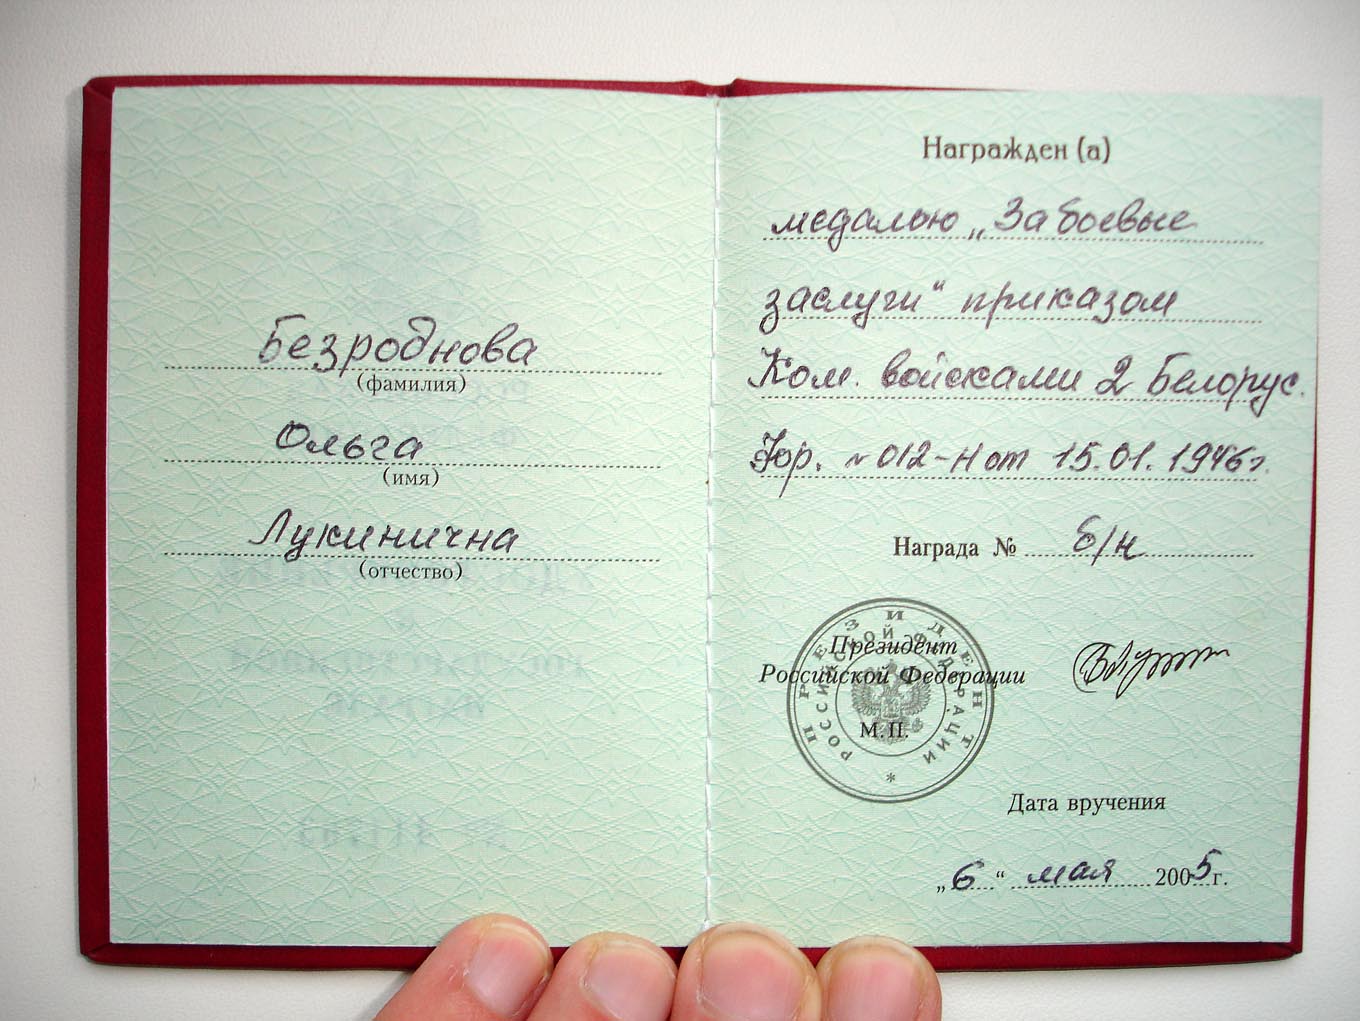 Безроднова
(фамилия)
Ольга
(имя)
Лукинична
(отчество)
Награжден (а)
медалью „За боевые
заслуги“ приказом
Ком. войсками 2 Белорус.
Фор. № 012-Н от 15.01.1946г.
Награда № б/н
ПРЕЗИДЕНТ
РОССИЙСКОЙ ФЕДЕРАЦИИ
*
Президент
Российской Федерации
М.П.
Дата вручения
„6“ мая 2005г.